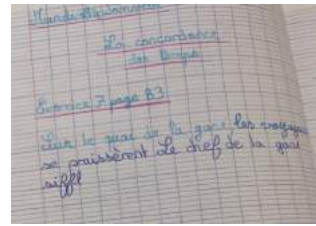 Mardi
La concordance
des temps
Exercice 7 page 83
Sur le quai de la gare, les voyageu
se praissèrent Le chef de la gare
siffl